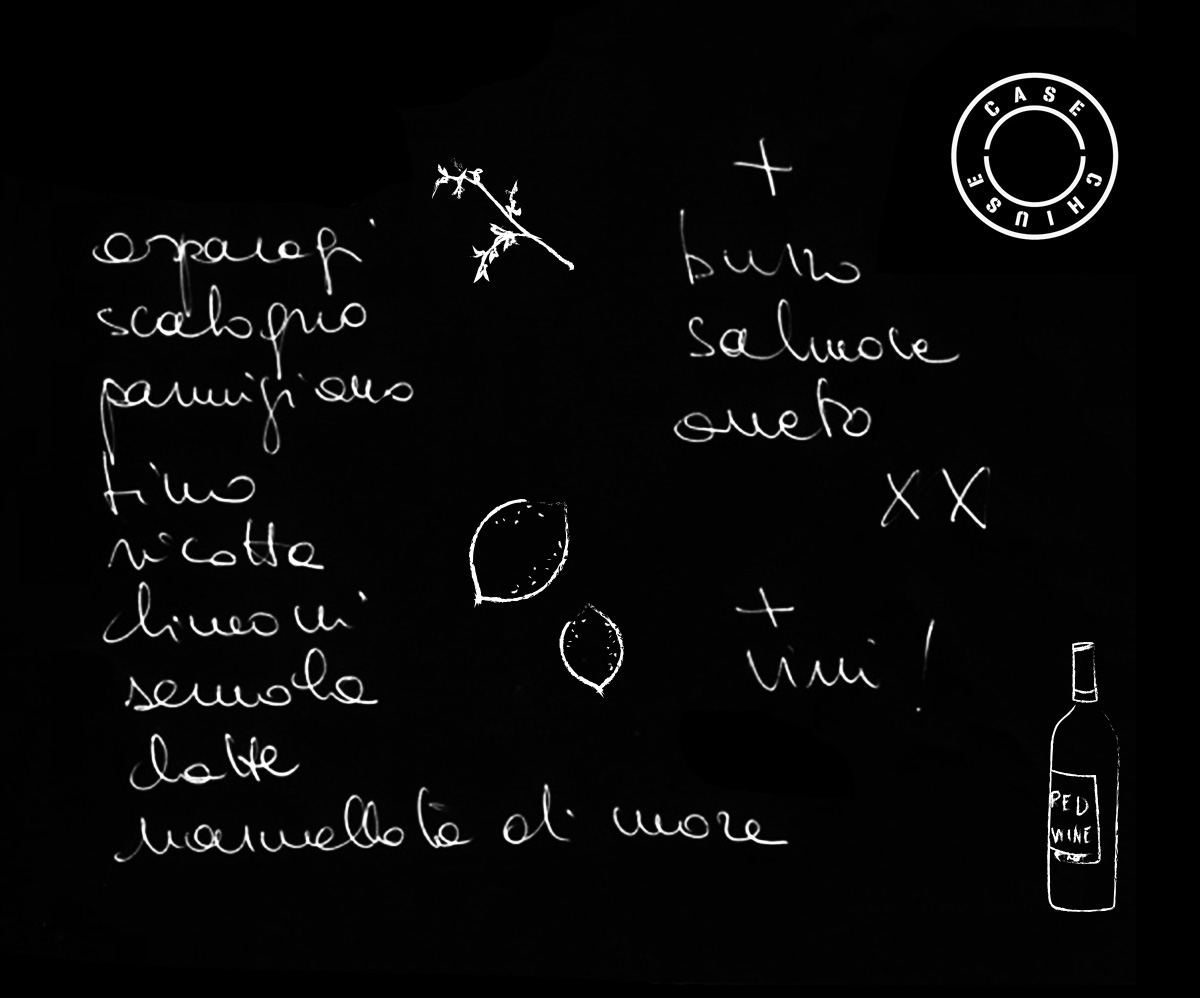 asparagi
scalogno
parmigiano
timo
ricotta
limoni
semola
latte
marmellata di more
+
burro
salmone
aneto
XX
+
vini!
CASE CHIUSE
RED
WINE